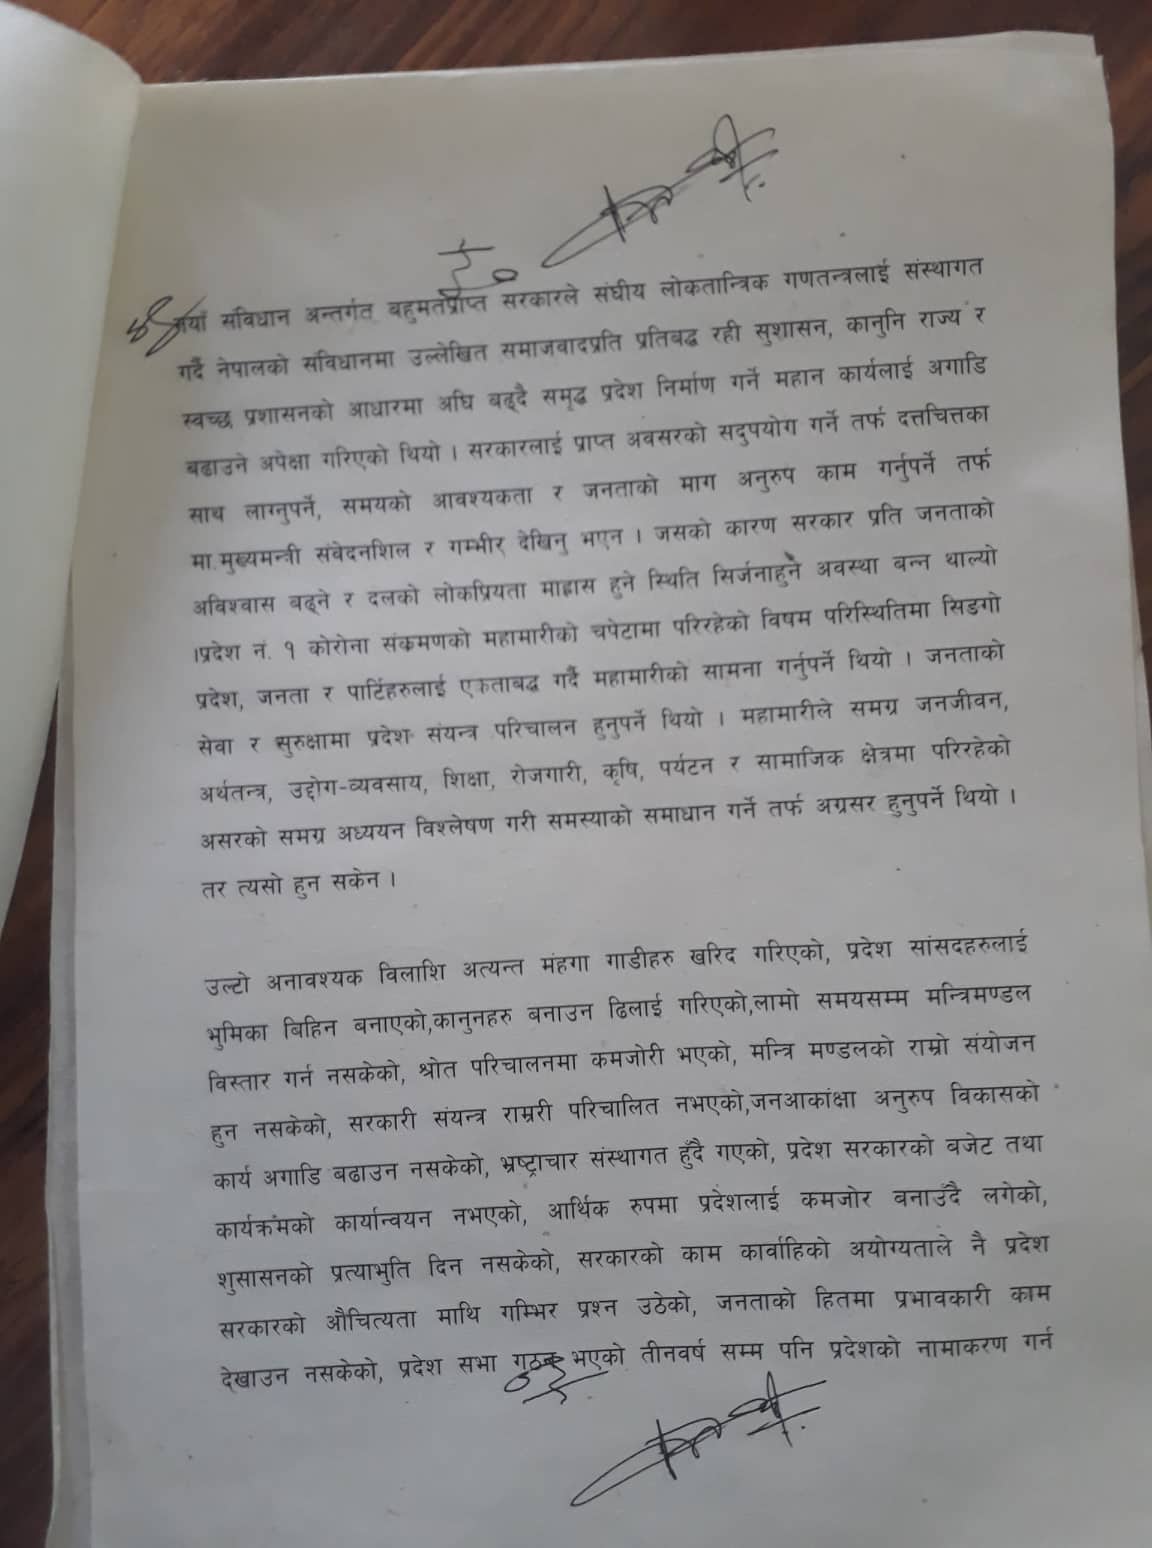 नयाँ संविधान अन्तर्गत बहुमतप्राप्त सरकारले संघीय लोकतान्त्रिक गणतन्त्रलाई संस्थागत
गर्दै नेपालको संविधानमा उल्लेखित समाजवादप्रति प्रतिबद्ध रही सुशासन, कानुनि राज्य र
स्वच्छ प्रशासनको आधारमा अघि बढ्दै समृद्ध प्रदेश निर्माण गर्ने महान कार्यलाई अगाडि
बढाउने अपेक्षा गरिएको थियो । सरकारलाई प्राप्त अवसरको सदुपयोग गर्ने तर्फ दत्तचित्तका
साथ लाग्नुपर्ने, समयको आवश्यकता र जनताको माग अनुरुप काम गर्नुपर्ने तर्फ
मा.मुख्यमन्त्री संवेदनशिल र गम्भीर देखिनु भएन । जसको कारण सरकार प्रति जनताको
अविश्वास बढ्ने र दलको लोकप्रियता माह्रास हुने स्थिति सिर्जनाहुने अवस्था बन्न थाल्यो
।प्रदेश नं. १ कोरोना संक्रमणको महामारीको चपेटामा परिरहेको विषम परिस्थितिमा सिङगो
प्रदेश, जनता र पार्टिहरुलाई एकताबद्ध गर्दै महामारीको सामना गर्नुपर्ने थियो । जनताको
सेवा र सुरुक्षामा प्रदेश संयन्त्र परिचालन हुनुपर्ने थियो । महामारीले समग्र जनजीवन,
अर्थतन्त्र, उद्दोग-व्यवसाय, शिक्षा, रोजगारी, कृषि, पर्यटन र सामाजिक क्षेत्रमा परिरहेको
असरको समग्र अध्ययन विश्लेषण गरी समस्याको समाधान गर्ने तर्फ अग्रसर हुनुपर्ने थियो ।
तर त्यसो हुन सकेन ।
उल्टो अनावश्यक विलाशि अत्यन्त मंहगा गाडीहरु खरिद गरिएको, प्रदेश सांसदहरुलाई
भुमिका बिहिन बनाएको,कानुनहरु बनाउन ढिलाई गरिएको,लामो समयसम्म मन्त्रिमण्डल
विस्तार गर्न नसकेको, श्रोत परिचालनमा कमजोरी भएको, मन्त्रि मण्डलको राम्रो संयोजन
हुन नसकेको, सरकारी संयन्त्र राम्ररी परिचालित नभएको,जनआकांक्षा अनुरुप विकासको
कार्य अगाडि बढाउन नसकेको, भ्रष्ट्राचार संस्थागत हुँदै गएको, प्रदेश सरकारको बजेट तथा
कार्यक्रमको कार्यान्वयन नभएको, आर्थिक रुपमा प्रदेशलाई कमजोर बनाउँदै लगेको,
शुसासनको प्रत्याभुति दिन नसकेको, सरकारको काम कार्वाहिको अयोग्यताले नै प्रदेश
सरकारको औचित्यता माथि गम्भिर प्रश्न उठेको, जनताको हितमा प्रभावकारी काम
देखाउन नसकेको, प्रदेश सभा गठन भएको तीनवर्ष सम्म पनि प्रदेशको नामाकरण गर्न